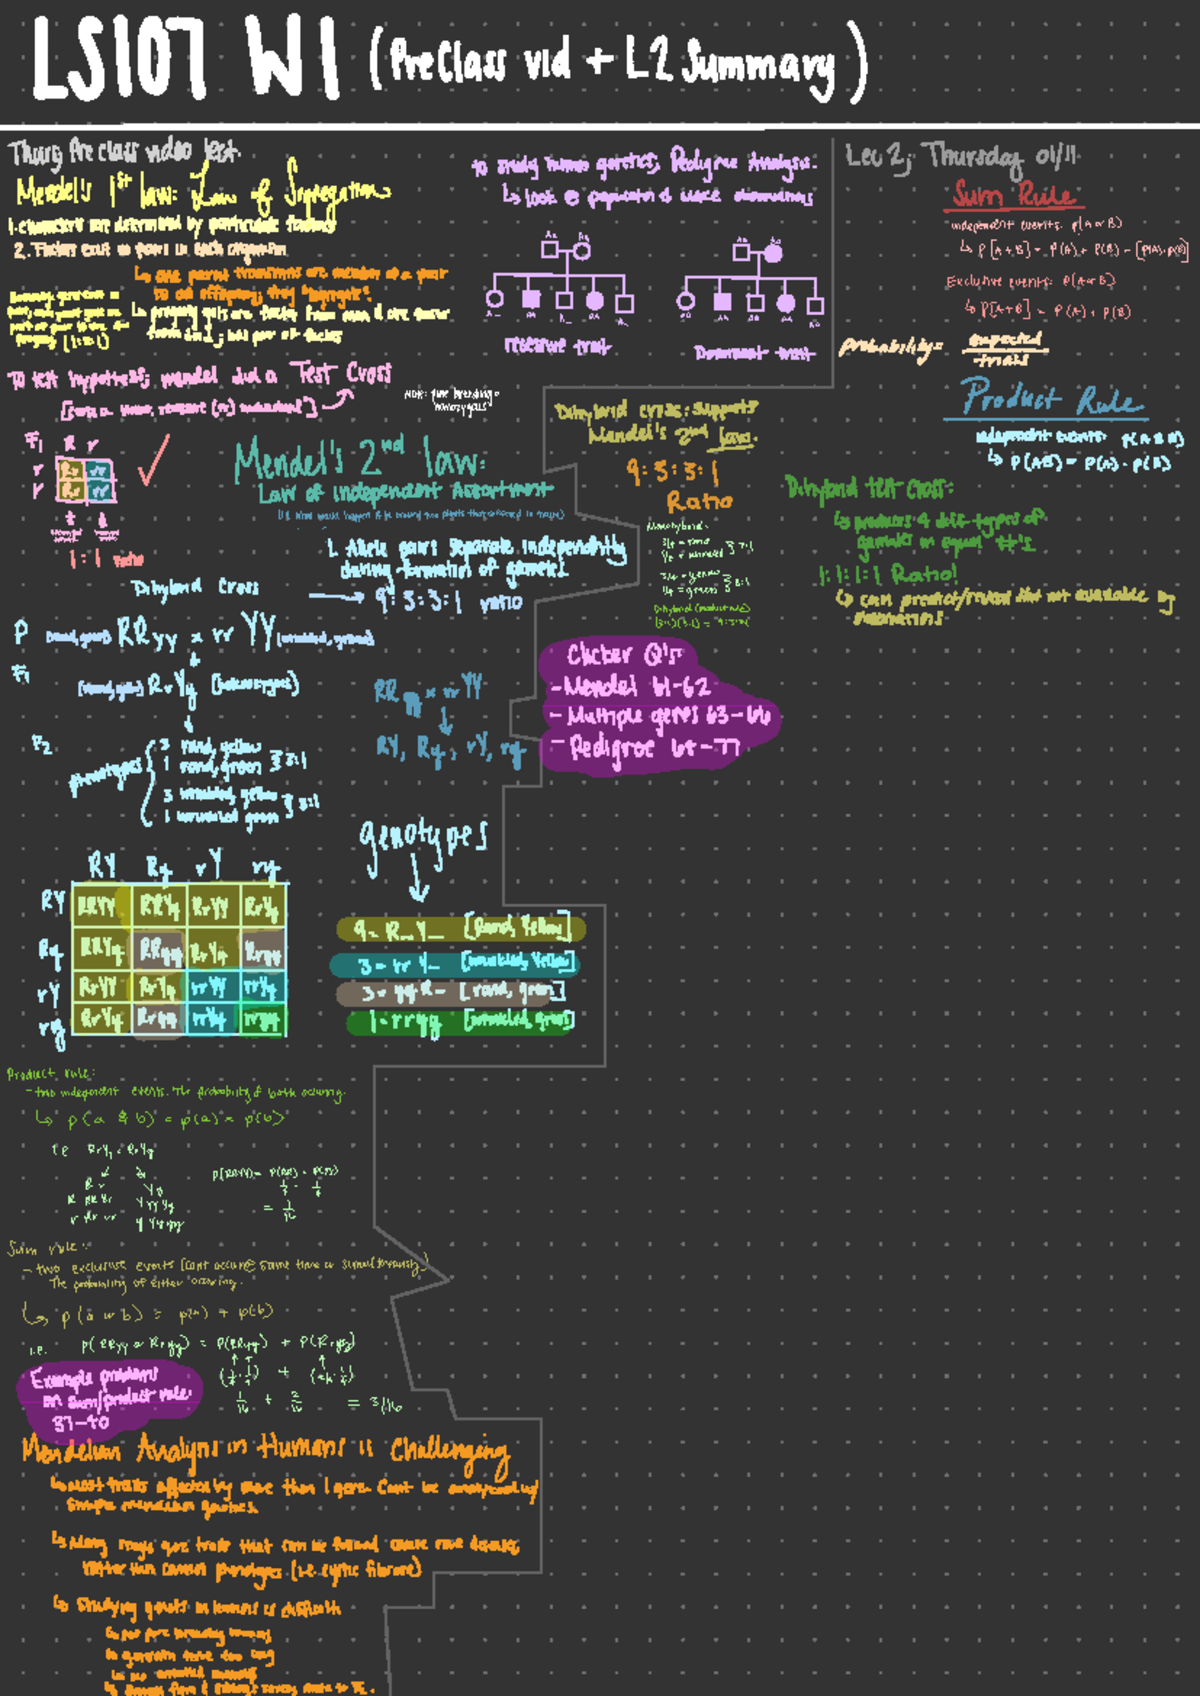 LS107 W1 (PreClass vid + L2 Summary)
Thurs Pre class video test.
Mendel's 1st law: Law of Segregation
1. characters are determined by particulate factors
2. Factors exist in pairs in each organism
↳ one parent transmits one member of a pair
to an offspring, they "segregate".
↳ progeny gets one factor from mom & one factor
from dad; has pair of factors
(1:1)
To test hypothesis, mendel did a Test Cross
F1 R r
r Rr rr
r Rr rr
1:1 ratio
Note: pure breeding =
homozygous
Mendel's 2nd law:
Law of Independent Assortment
1. Allele pairs separate independently
during formation of gametes
→ 9:3:3:1 ratio
Dihybrid Cross
P (round, green) RRyy × rrYY (wrinkled, yellow)
F1
RrYy (heterozygous)
F2
phenotypes
3 round, yellow
1 round, green 3:1
3 wrinkled, yellow
1 wrinkled green 3:1
RRyy × rrYY
RY, Ry, rY, ry
genotypes
RY Ry rY ry
RY RRYY RRYy RrYY RrYy
Ry RRYy RRyy RrYy Rryy
rY RrYY RrYy rrYY rrYy
ry RrYy Rryy rrYy rryy
9 = R_Y_ [Round, Yellow]
3 = rrY_ [wrinkled, Yellow]
3 = yyR- [round, green]
1 = rryy [wrinkled, green]
Product rule:
- two independent events. The probability of both occuring.
↳ p(a & b) = p(a) × p(b)
i.e. RrYy × RrYy
P(RRYY) = P(RR) · P(YY)
1/4 · 1/4
= 1/16
Sum rule:
- two exclusive events [cant occur @ same time or simultaneously]
The probability of either occuring.
↳ p(a or b) = p(a) + p(b)
i.e. p(RRyy or Rryy) = P(RRyy) + P(Rryy)
1/16 + 2/16 = 3/16
Example problems
on sum/product rule:
37-40
Mendelian Analysis in Humans is Challenging
↳ most traits affected by more than 1 gene. Cant be analyzed w/
simple mendelian genetics.
↳ Many single gene traits that can be found cause rare diseases,
rather than common phenotypes (i.e. cystic fibrosis)
↳ Studying genetics in humans is difficult
↳ no pure breeding humans
↳ generation time too long
↳ no controlled matings
To study human genetics, Pedigree Analysis.
↳ look @ population & make deductions
recessive trait
Dominant trait
Dihybrid cross: supports
Mendel's 2nd law.
9:3:3:1
Ratio
Monohybrid:
3/4 = round
1/4 = wrinkled 3:1
3/4 = yellow
1/4 = green 3:1
Dihybrid (product rule)
(3:1)(3:1) = 9:3:3:1
Clicker Q's
- Mendel 61-62
- Multiple genes 63-66
- Pedigree 69-77
Lec 2, Thursday 01/11
Sum Rule
independent events: P(A or B)
↳ P[A+B] = P(A) + P(B) - [P(A)·P(B)]
Exclusive events: P(A or B)
↳ P[A+B] = P(A) + P(B)
probability = expected
trials
Product Rule
independent events: P(A & B)
↳ P(AB) = P(A) · P(B)
Dihybrid test cross:
↳ produces 4 diff types of
gametes in equal #'s
1:1:1:1 Ratio!